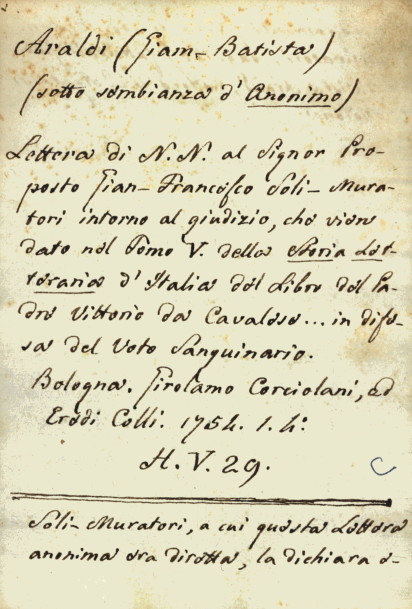 Araldi (Giam-Batista)
(sotto sembianza d' Anonimo)
Lettera di N. N. al Signor Pro-
posto Gian-Francesco Soli-Mura-
tori intorno al giudizio, che vien
dato nel Tomo V. della Storia Let-
teraria d' Italia del Libro del Pa-
dre Vittorio da Cavalese... in dife-
sa del Voto Sanguinario.
Bologna. Girolamo Corciolani, ed
Eredi Colli. 1754. 1. 4.º
H. V. 29.
Soli-Muratori, a cui questa Lettera
anonima era diretta, la dichiara o-